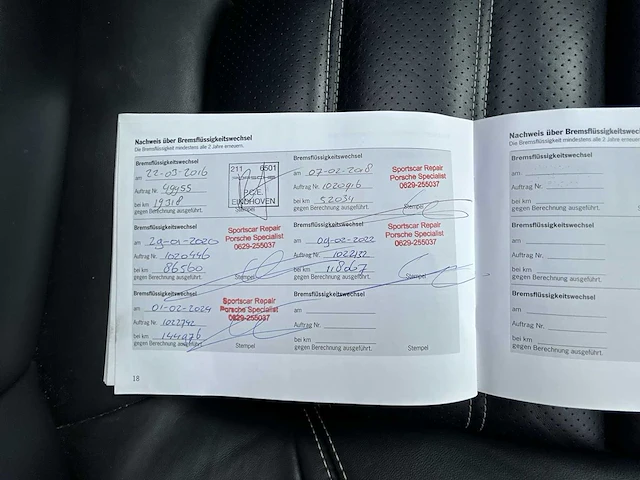 Nachweis über Bremsflüssigkeitswechsel
Die Bremsflüssigkeit mindestens alle 2 Jahre erneuern.
Bremsflüssigkeitswechsel
am 22-03-2016
Auftrag Nr. 49955
bei km 19318
gegen Berechnung ausgeführt.
211 6501
P.C.E.
EINDHOVEN
Stempel
Bremsflüssigkeitswechsel
am 07-02-2018
Auftrag Nr. 1020916
bei km 52034
gegen Berechnung ausgeführt.
Sportscar Repair
Porsche Specialist
0629-255037
Stempel
Bremsflüssigkeitswechsel
am 29-01-2020
Auftrag Nr. 1020446
bei km 86560
gegen Berechnung ausgeführt.
Sportscar Repair
Porsche Specialist
0629-255037
Stempel
Bremsflüssigkeitswechsel
am 09-02-2022
Auftrag Nr. 1022132
bei km
gegen Berechnung ausgeführt.
Sportscar Repair
Porsche Specialist
0629-255037
Stempel
Bremsflüssigkeitswechsel
am 01-02-2024
Auftrag Nr. 1022742
bei km 144976
gegen Berechnung ausgeführt.
Sportscar Repair
Porsche Specialist
0629-255037
Stempel
Bremsflüssigkeitswechsel
am
Auftrag Nr.
bei km
gegen Berechnung ausgeführt.
Stempel
18
Nachweis über Bremsflüssigkeitswechs
Die Bremsflüssigkeit mindestens alle 2 Jahre erneuern.
Bremsflüssigkeitswechsel
am
Auftrag Nr.
bei km
gegen Berechnung ausgeführt.
Bremsflüssigkeitswechsel
am
Auftrag Nr.
bei km
gegen Berechnung ausgeführt.
Bremsflüssigkeitswechsel
am
Auftrag Nr.
bei km
gegen Berechnung ausgeführt.